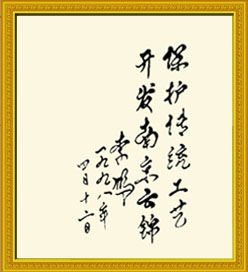 保护传统工艺
开发南京云锦
李鹏
一九九八年
四月十二日